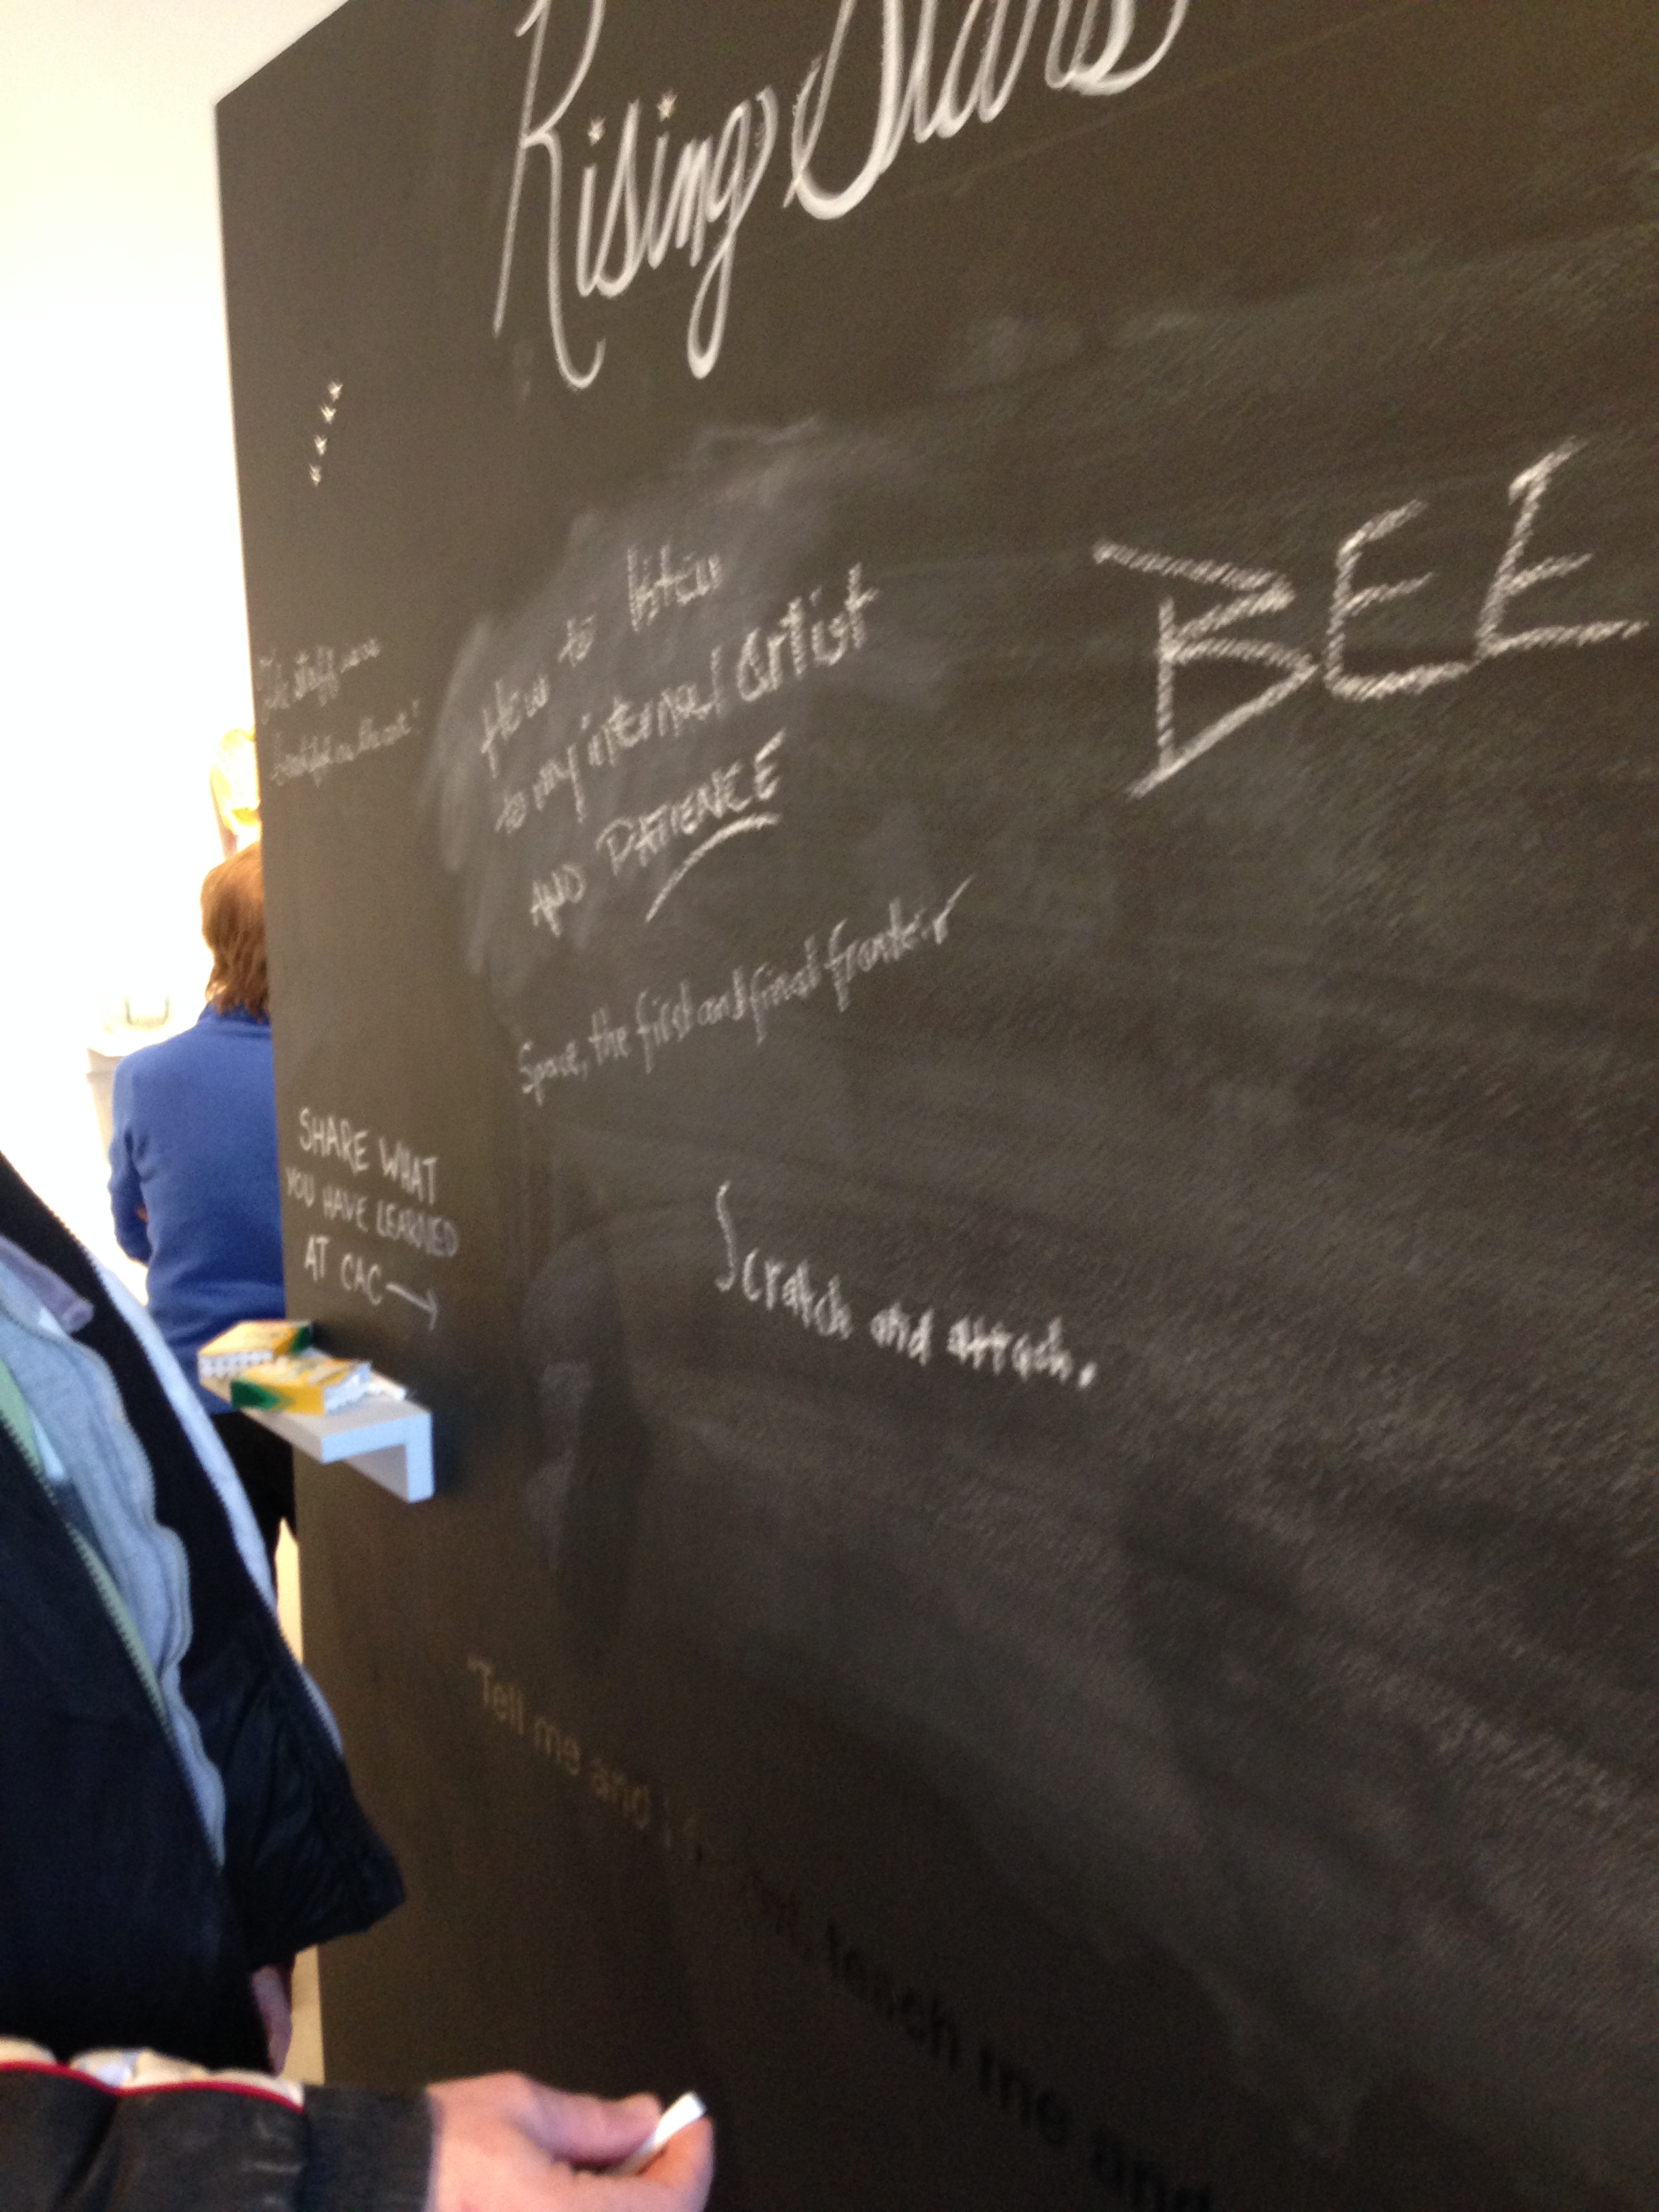 Rising Stars
BEE
How to listen
to my internal artist
AND PATIENCE
Space, the first and final fronteir
SHARE WHAT
YOU HAVE LEARNED
AT CAC
Scratch and attach.
"Tell me and I forget, teach me and